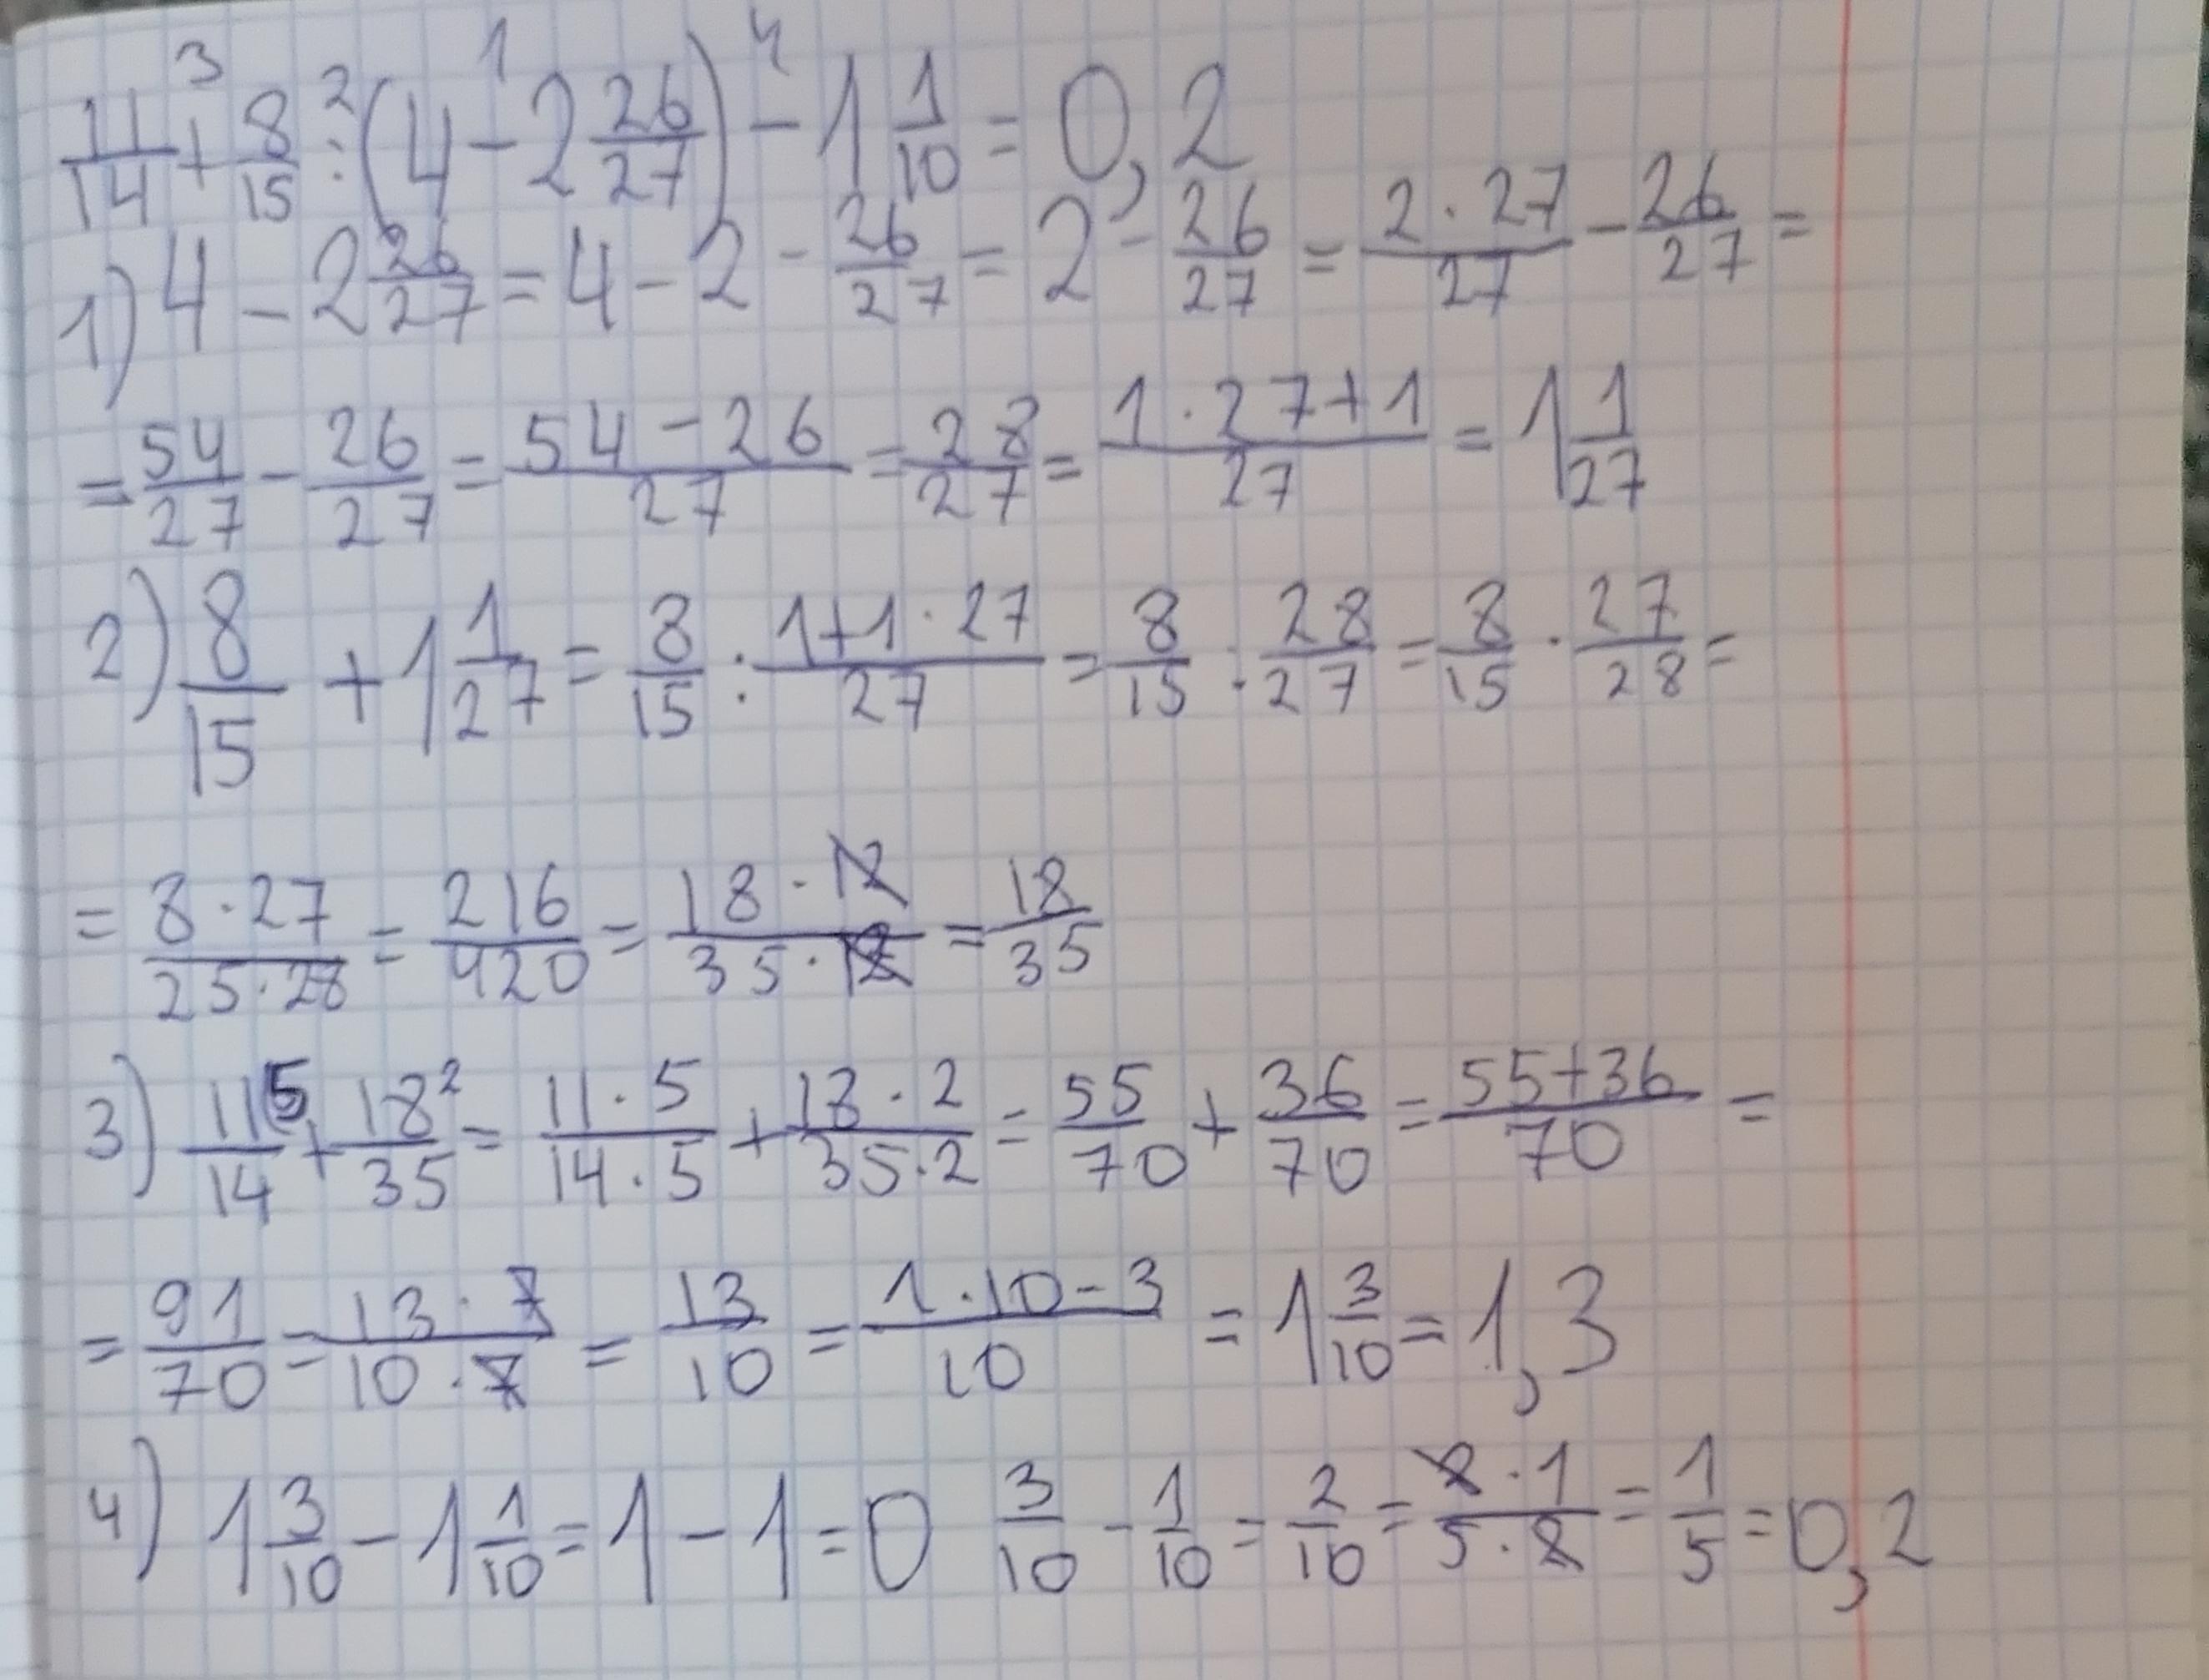 11/14 +³ 8/15 :² (4 -¹ 2 26/27) -⁴ 1 1/10 = 0,2
1) 4 - 2 26/27 = 4 - 2 - 26/27 = 2 - 26/27 = 2·27/27 - 26/27 =
= 54/27 - 26/27 = 54-26/27 = 28/27 = 1·27+1/27 = 1 1/27
2) 8/15 + 1 1/27 = 8/15 : 1+1·27/27 = 8/15 : 28/27 = 8/15 · 27/28 =
= 8·27/25·28 = 216/420 = 18·12/35·12 = 18/35
3) 11⁵/14 + 18²/35 = 11·5/14·5 + 18·2/35·2 = 55/70 + 36/70 = 55+36/70 =
= 91/70 = 13·7/10·7 = 13/10 = 1·10-3/10 = 1 3/10 = 1,3
4) 1 3/10 - 1 1/10 = 1 - 1 = 0 3/10 - 1/10 = 2/10 = 2·1/5·2 = 1/5 = 0,2